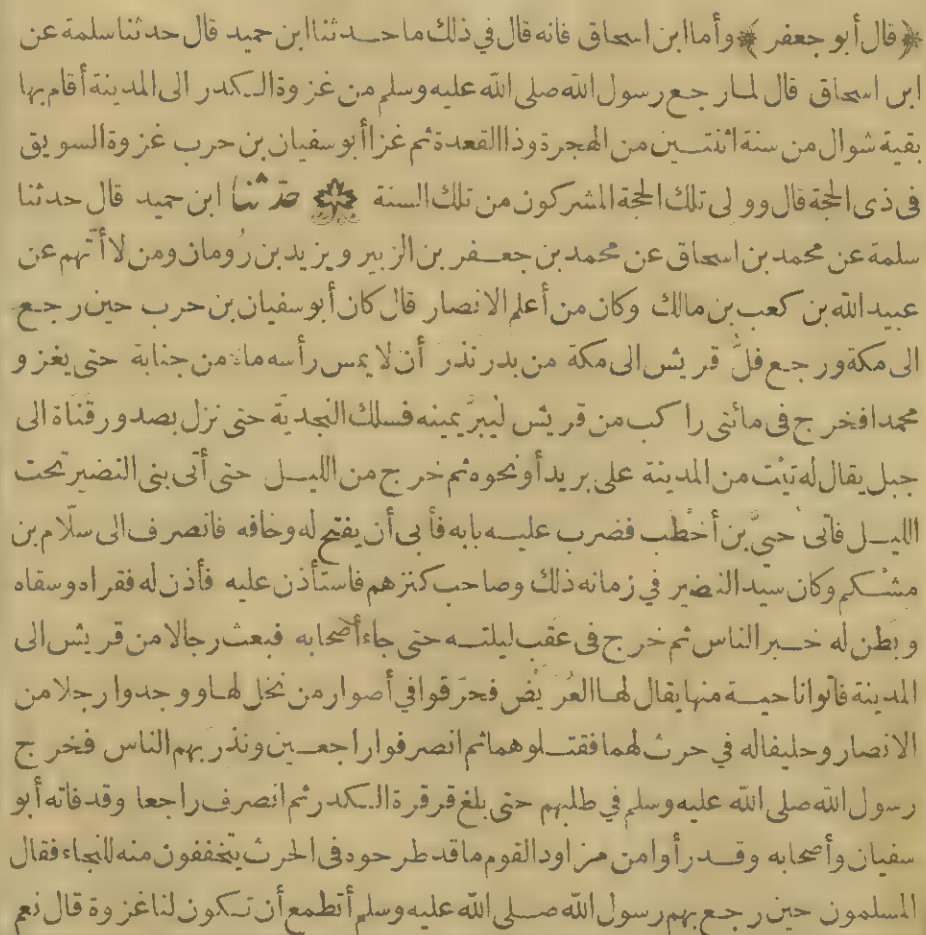 ﴿قال أبو جعفر﴾ وأما ابن اسحاق فانه قال في ذلك ما حدثنا ابن حميد قال حدثنا سلمة عن
ابن اسحاق قال لما رجع رسول الله صلى الله عليه وسلم من غزوة الكدر الى المدينة أقام بها
بقية شوال من سنة اثنتين من الهجرة وذا القعدة ثم غزا أبو سفيان بن حرب غزوة السويق
في ذى الحجة قال وولى تلك الحجة المشركون من تلك السنة حدثنا ابن حميد قال حدثنا
سلمة عن محمد بن اسحاق عن محمد بن جعفر بن الزبير ويزيد بن رُومان ومن لا أتهم عن
عبيد الله بن كعب بن مالك وكان من أعلم الانصار قال كان أبو سفيان بن حرب حين رجع
الى مكة ورجع فلُّ قريش الى مكة من بدر نذَر أن لا يمس رأسه ماء من جنابة حتى يغزو
محمدا فخرج في مائتى راكب من قريش ليبرَّ يمينه فسلك النجدية حتى نزل بصدور قَناة الى
جبل يقال له تيْت من المدينة على بريد أو نحوه ثم خرج من الليل حتى أتى بنى النضير تحت
الليل فأتى حيىَّ بن أخطب فضرب عليه بابه فأبى أن يفتح له وخافه فانصرف الى سلّام بن
مشكم وكان سيد النضير في زمانه ذلك وصاحب كنزهم فاستأذن عليه فأذن له فقراه وسقاه
وبطن له خبر الناس ثم خرج في عقب ليلته حتى جاء أصحابه فبعث رجالا من قريش الى
المدينة فأتوا ناحية منها يقال لها العُرَيْض فحرّقوا في أصوار من نخل لها ووجدوا رجلا من
الانصار وحليفا له في حرث لهما فقتلوهما ثم انصرفوا راجعين ونذر بهم الناس فخرج
رسول الله صلى الله عليه وسلم في طلبهم حتى بلغ قرقرة الكدر ثم انصرف راجعا وقد فاته أبو
سفيان وأصحابه وقد رأوا من مزاود القوم ما قد طرحوه في الحرث يتخففون منه للنجاء فقال
المسلمون حين رجع بهم رسول الله صلى الله عليه وسلم أتطمع أن تكون لنا غزوة قال نعم